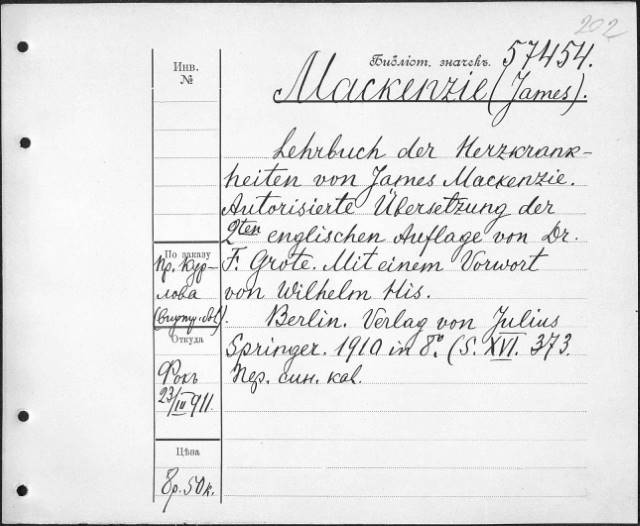 202
Инв.
№
Библіот. значекъ. 57454.
Mackenzie (James).
Lehrbuch der Herzkrank-
heiten von James Mackenzie.
Autorisierte Übersetzung der
2ten englischen Auflage von Dr.
F. Grote. Mit einem Vorwort
von Wilhelm His.
Berlin. Verlag von Julius
Springer. 1910 in 8°. (S. XVI. 373.
Пер. син. кал.
По заказу
Пр. Кур-
лова
Откуда
Фокъ
23/IV 911.
Цѣна
8р. 50к.